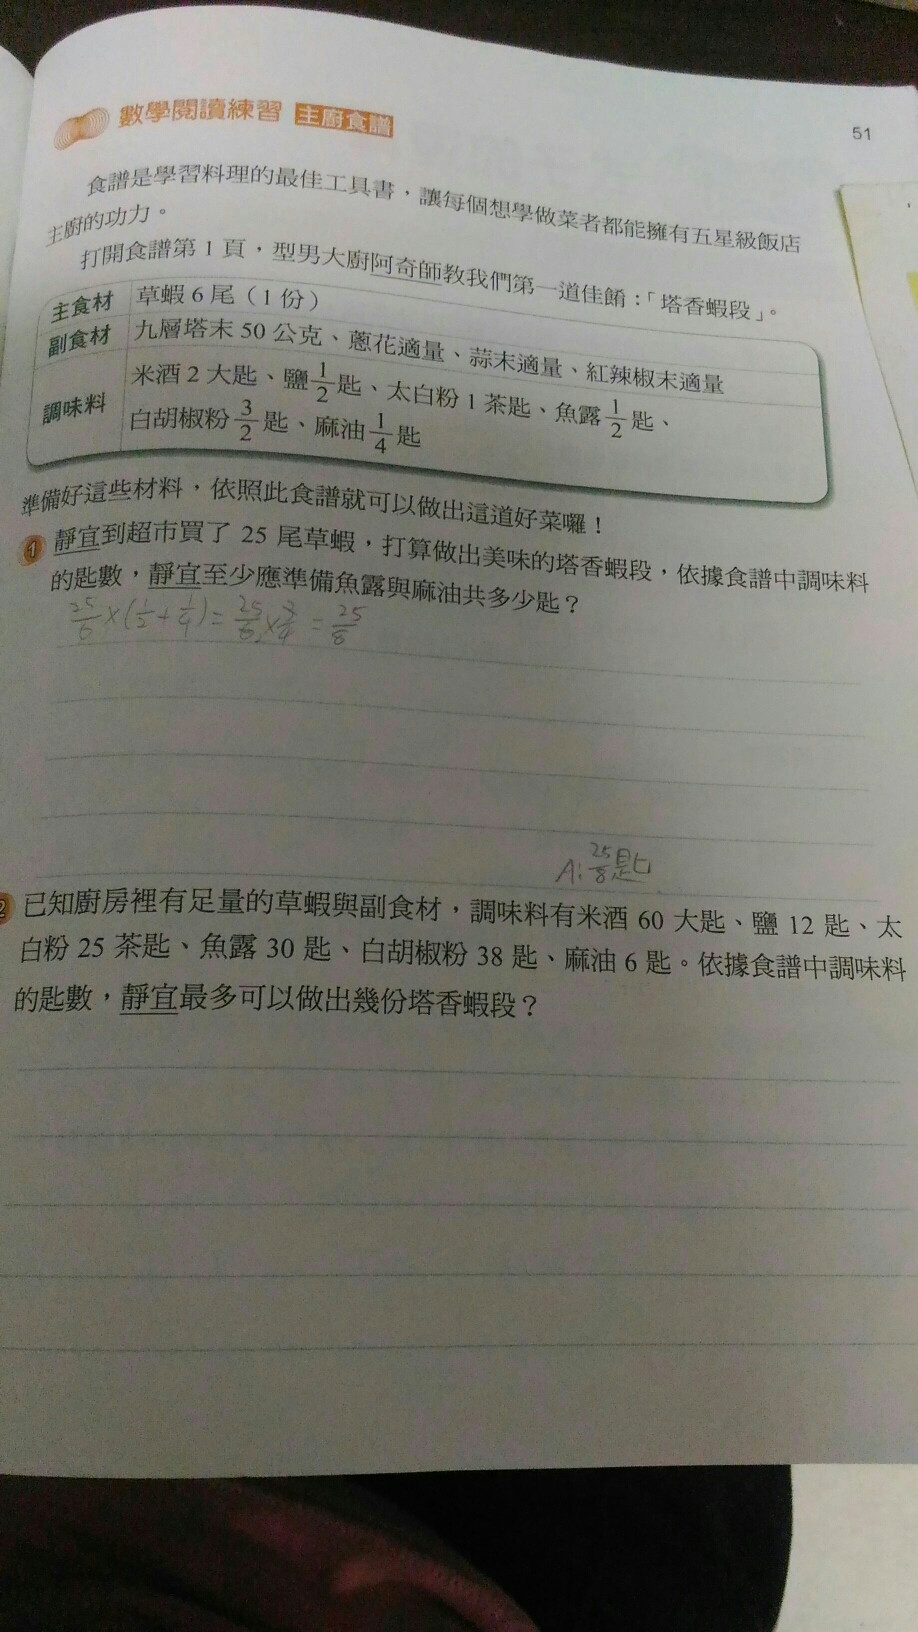 數學閱讀練習 主廚食譜
51
食譜是學習料理的最佳工具書，讓每個想學做菜者都能擁有五星級飯店
主廚的功力。
打開食譜第1頁，型男大廚阿奇師教我們第一道佳餚：「塔香蝦段」。
主食材 草蝦6尾（1份）
副食材 九層塔末50公克、蔥花適量、蒜末適量、紅辣椒末適量
調味料 米酒2大匙、鹽1/2匙、太白粉1茶匙、魚露1/2匙、
白胡椒粉3/2匙、麻油1/4匙
準備好這些材料，依照此食譜就可以做出這道好菜囉！
1 靜宜到超市買了25尾草蝦，打算做出美味的塔香蝦段，依據食譜中調味料
的匙數，靜宜至少應準備魚露與麻油共多少匙？
25/6×(1/2+1/4)=25/6×3/4=25/8
A:25/8匙
2 已知廚房裡有足量的草蝦與副食材，調味料有米酒60大匙、鹽12匙、太
白粉25茶匙、魚露30匙、白胡椒粉38匙、麻油6匙。依據食譜中調味料
的匙數，靜宜最多可以做出幾份塔香蝦段？